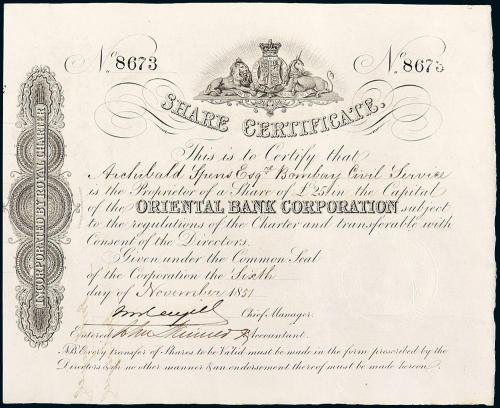 No. 8673 No. 8673
SHARE CERTIFICATE.
INCORPORATED BY ROYAL CHARTER
This is to Certify that
Archibald Spens Esqr. Bombay Civil Service
is the Proprietor of a Share of £25 in the Capital
of the ORIENTAL BANK CORPORATION subject
to the regulations of the Charter and transferable with
Consent of the Directors.
Given under the Common Seal
of the Corporation the Sixth
day of November 1851
Chief Manager.
Entered Accountant.
NB. Every transfer of Shares to be Valid must be made in the form prescribed by the
Directors & in no other manner & an endorsement thereof must be made hereon.